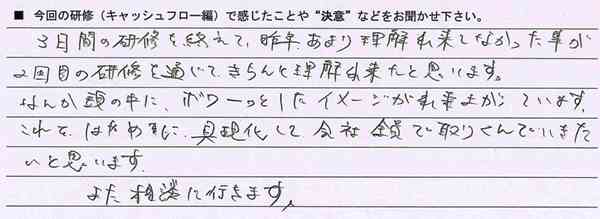 ■ 今回の研修（キャッシュフロー編）で感じたことや“決意”などをお聞かせ下さい。
3日間の研修を終えて、昨年、あまり理解出来てなかった事が
2回目の研修を通じて、きちんと理解出来たと思います。
なんか頭の中に、ボワーっとしたイメージが出来上がっています。
これを、はやめに、具現化して会社全員で取りくんでいきた
いと思います。
また相談に行きます。